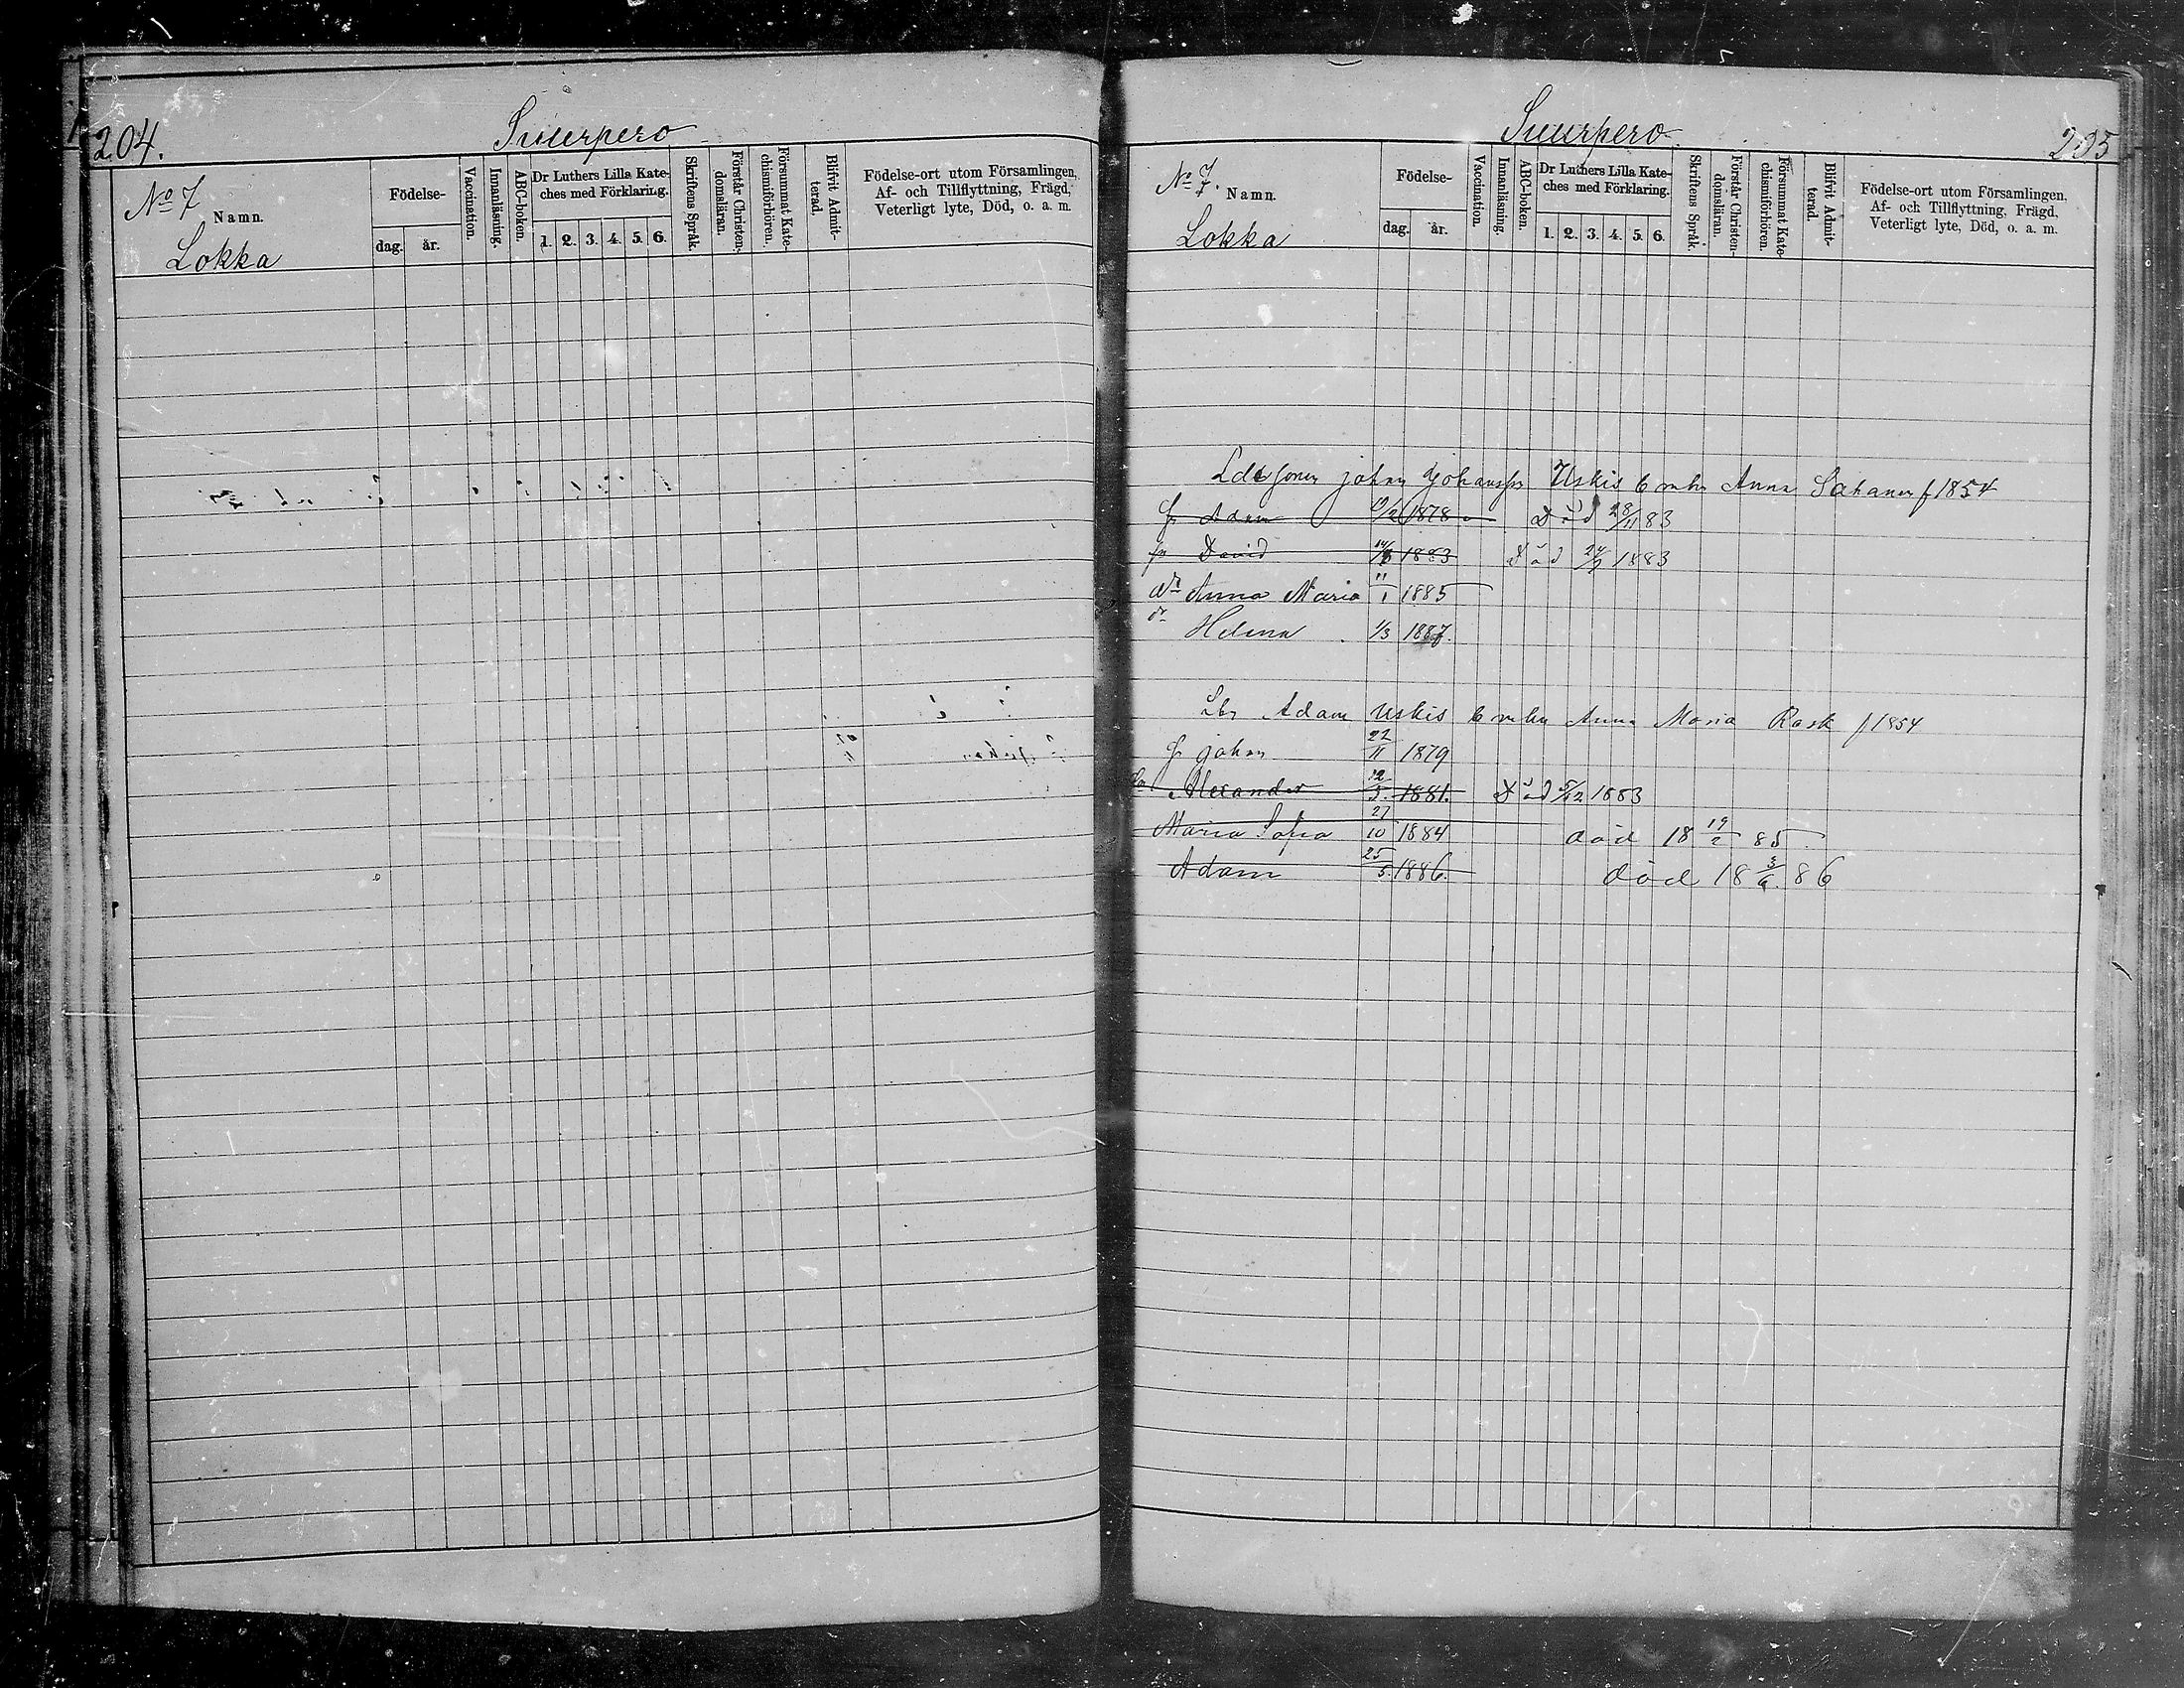 204.
Suurpero
No 7
Namn.
Lokka
Födelse-
dag.
år.
Vaccination.
Innanläsning.
ABC-boken.
Dr Luthers Lilla Kate-
ches med Förklaring.
1. 2. 3. 4. 5. 6.
Skriftens Språk.
Förstår Christen-
domsläran.
Försummat Kate-
chismiförhören.
Blifvit Admit-
terad.
Födelse-ort utom Församlingen,
Af- och Tillflyttning, Frägd,
Veterligt lyte, Död, o. a. m.
Suurpero
205
No 7.
Namn.
Lokka
Födelse-
dag.
år.
Vaccination.
Innanläsning.
ABC-boken.
Dr Luthers Lilla Kate-
ches med Förklaring.
1. 2. 3. 4. 5. 6.
Skriftens Språk.
Förstår Christen-
domsläran.
Försummat Kate-
chismiförhören.
Blifvit Admit-
terad.
Födelse-ort utom Församlingen,
Af- och Tillflyttning, Frägd,
Veterligt lyte, Död, o. a. m.
johan johansson Uskis Anna f 1854
Adam 1878 Död 28/11 83
David 1883 Död 1883
dr Anna Maria 11/1 1885
dr Helena 1/3 1887.
Adam Uskis Anna Maria Rask f 1854
johan 22/11 1879
Alexander 12/3. 1881. Död 5/12 1883
Maria Sofia 27/10 1884 död 18 19/2 85
Adam 25/5. 1886. död 18 3/6. 86